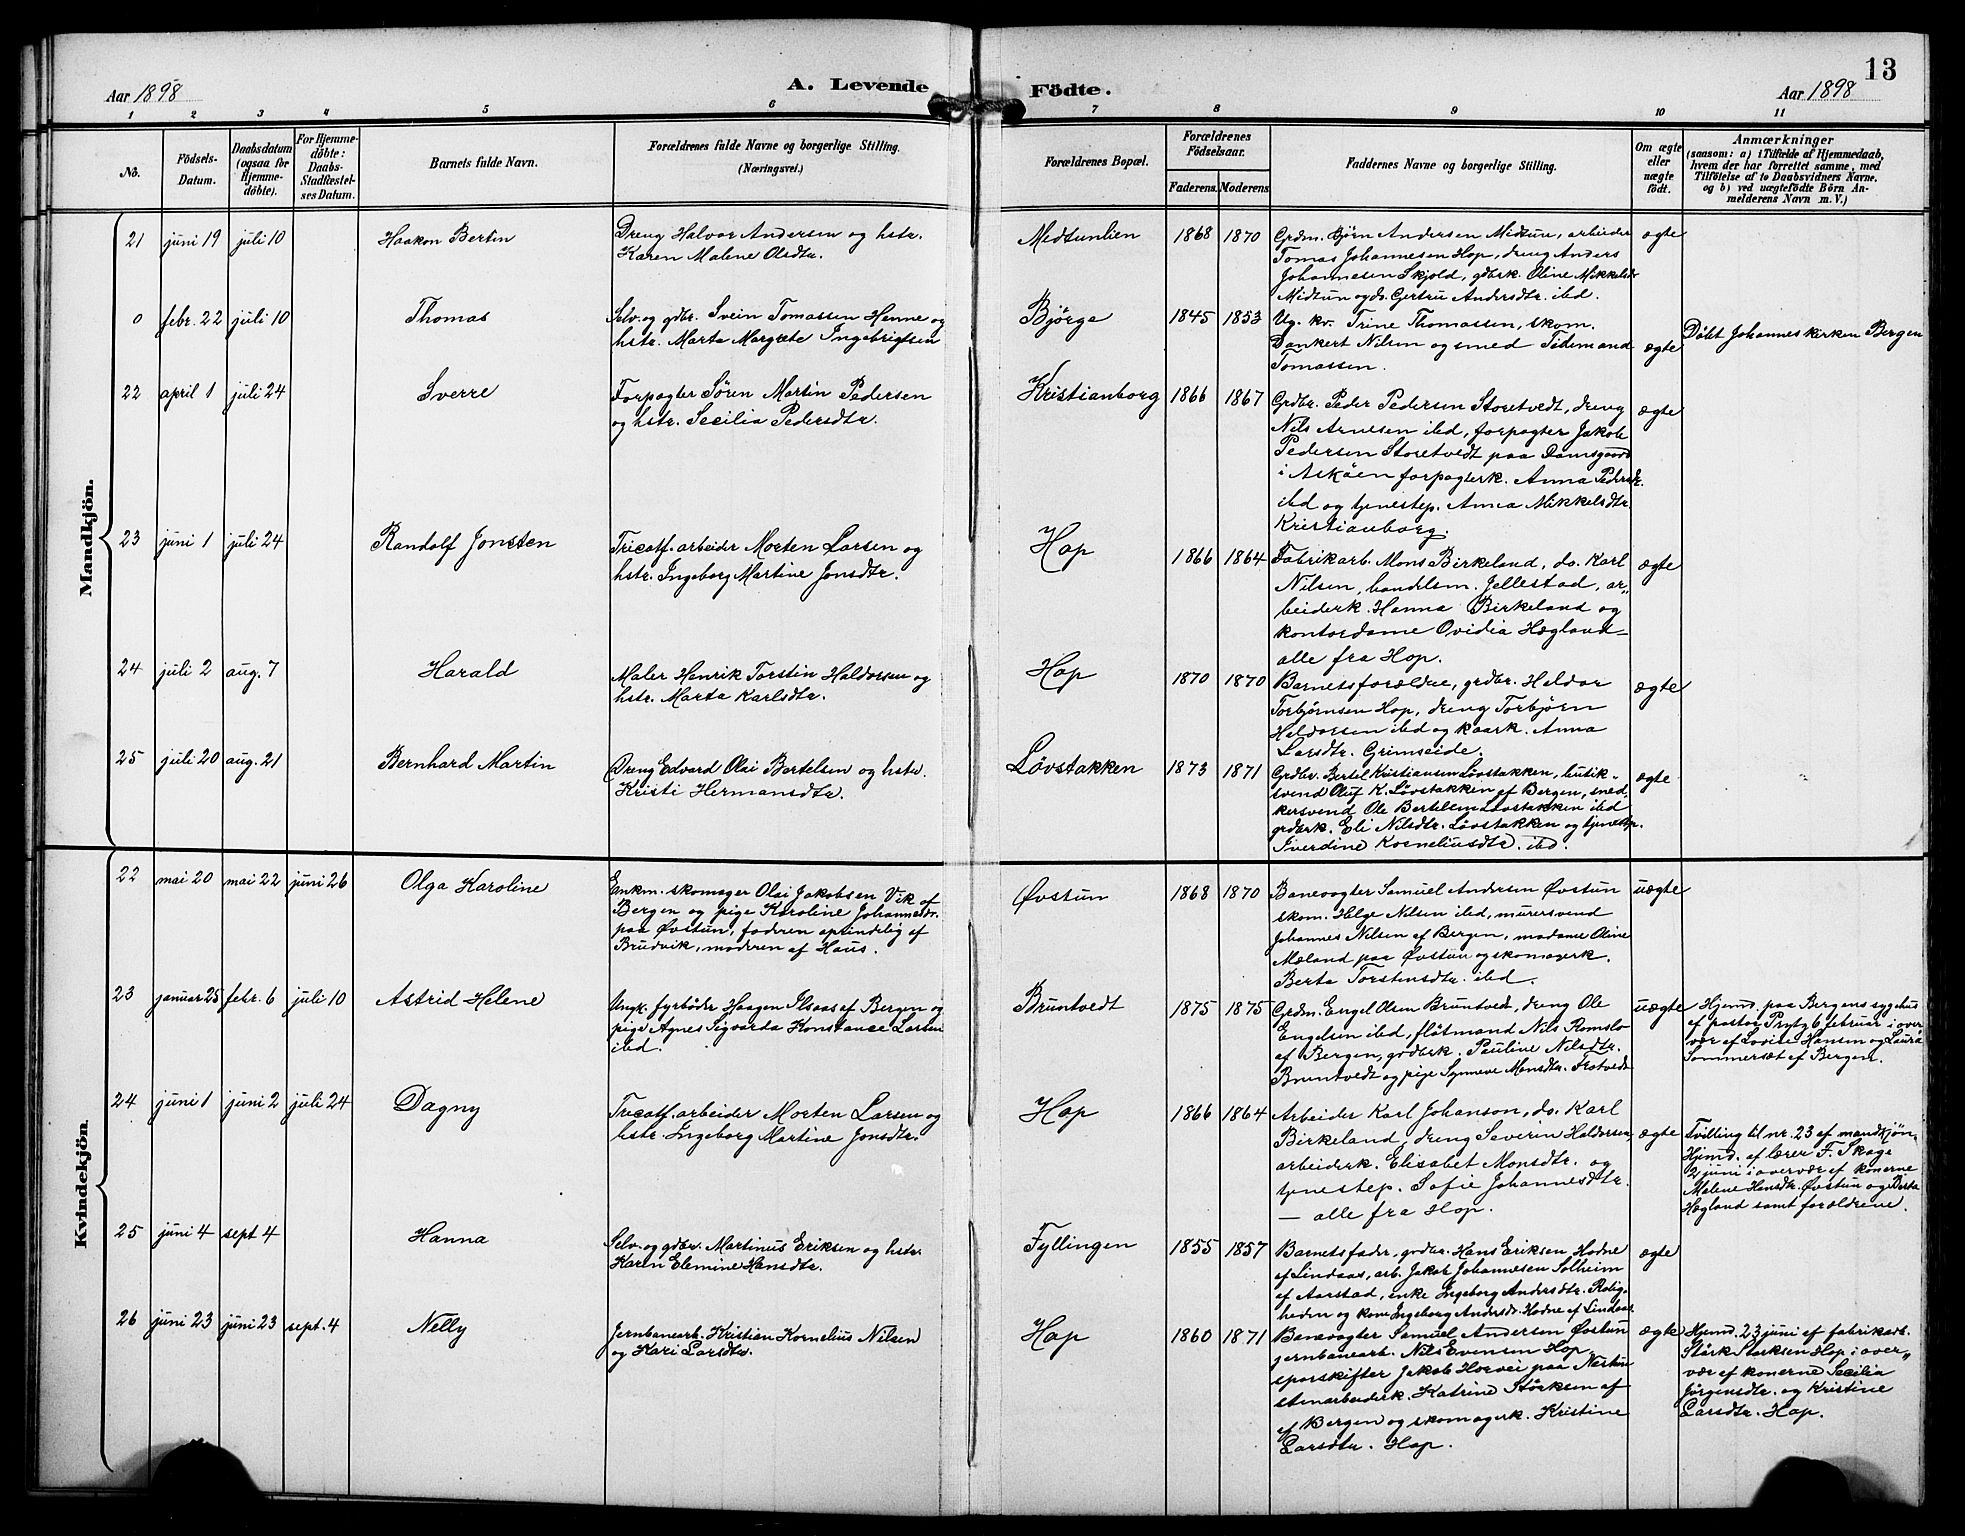 13
Aar 1898
A. Levende Födte.
Aar 1898
1 2 3 4 5 6 7 8 9 10 11
No.
Födsels-
Datum.
Daabsdatum
(ogsaa for
Hjemme-
döbte).
For Hjemme-
döbte:
Daabs-
Stadfæstel-
ses Datum.
Barnets fulde Navn.
Forældrenes fulde Navne og borgerlige Stilling.
(Næringsvei.)
Forældrenes Bopæl.
Forældrenes
Födselsaar.
Faderens. Moderens.
Faddernes Navne og borgerlige Stilling.
Om ægte
eller
uægte
födt.
Anmærkninger
(saasom: a) i Tilfælde af Hjemmedaab,
hvem der har forrettet samme, med
Tilföielse af to Daabsvidners Navne,
og b) ved uægtefödte Börn An-
melderens Navn m. V.)
Mandkjön.
21 juni 19 juli 10 Haakon Bertin
Dreng Halvor Andersen og hstr.
Karen Malene Olsdtr.
Midtunlien 1868 1870
Grdm. Bjørn Andersen Midtun, arbeider
Tomas Johannesen Hop, dreng Anders
Johannesen Skjold, gdbrk. Oline Mikkelsdr.
Midtun og do. Gertru Andersdtr. ibd.
ægte
0 febr. 22 juli 10 Thomas
Selv. og gdbr. Svein Tomassen Henne og
hstr. Marta Margrete Ingebrigtsen
Bjørge 1845 1853
Ug. kv. Trine Thomassen, skom.
Dankert Nilsen og smed Tidemand
Tomassen.
ægte
Döbt Johanneskirken Bergen
22 april 1 juli 24 Sverre
Forpagter Søren Martin Pedersen
og hstr. Secilia Pedersdtr.
Kristianborg 1866 1867
Grdbr. Peder Pedersen Storetvedt, dreng
Nils Arnesen ibd, forpagter Jakob
Pedersen Storetvedt paa Damsgaard
i Askøen forpagterk. Anna Pedersdr.
ibd og tjenestep. Anna Mikkelsdtr.
Kristianborg.
ægte
23 juni 1 juli 24 Randolf Jonsten
Tricotf. arbeider Morten Larsen og
hstr. Ingeborg Martine Jonsdtr.
Hop 1866 1864
Fabrikarb. Mons Birkeland, do. Karl
Nilsen, handelsm. Jellestad, ar„
beiderk. Hanna Birkeland og
kontordame Ovidia Hægland =
alle fra Hop.
ægte
24 juli 2 aug. 7 Harald
Maler Henrik Torstin Haldorsen og
hstr. Marta Karlsdtr.
Hop 1870 1870
Barnets forældre, grdbr. Haldor
Torbjørnsen Hop, dreng Torbjørn
Haldorsen ibd og kaark. Anna
Larsdtr. Grimseide.
ægte
25 juli 20 aug. 21 Bernhard Martin
Dreng Edvard Olai Bertelsen og hstr.
Kristi Hermansdtr.
Løvstakken 1873 1871
Grdbr. Bertel Kristiansen Løvstakken, butik-
svend Oluf K. Løvstakken af Bergen, sned-
kersvend Ole Bertelsen Løvstakken ibd
grdbrk. Eli Nilsdtr. Løvstakken og tjenestp.
Iverdine Korneliusdtr. ibd.
ægte
Kvindekjön.
22 mai 20 mai 22 juni 26 Olga Karoline
Enkm. skomager Olai Jakobsen Vik af
Bergen og pige Karoline Johannesdr.
paa Øvstun, faderen oprindelig af
Brudvik, moderen af Haus.
Øvstun 1868 1870
Banevogter Samuel Andersen Øvstun
skom. Helge Nilsen ibd, murersvend
Johannes Nilsen af Bergen, madame Oline
Mæland paa Øvstun og skomagerk.
Berta Torstensdtr. ibd.
uægte
23 januar 25 febr. 6 juli 10 Astrid Helene
Ungk. fyrbøder Haagen Ilsaas af Bergen og
pige Agnes Sigvarda Konstance Larsen
ibd.
Bruntvedt 1875 1875
Grdm. Engel Olsen Bruntvedt, dreng Ole
Engelsen ibd, flåtmand Nils Romslo
af Bergen, grdbrk. Pauline Nilsdtr.
Bruntvedt og pige Synneve Monsdtr. Trotvedt
uægte
Hjemd. paa Bergens sygehus
af pastor Prytz 6 februar i over
vær af Lovise Hansen og Laura
Sommersæt af Bergen.
24 juni 1 juni 2 juli 24 Dagny
Tricotf. arbeider Morten Larsen og
hstr. Ingeborg Martine Jonsdtr.
Hop 1866 1864
Arbeider Karl Johanson, do. Karl
Birkeland, dreng Severin Haldorsen,
arbeiderk. Elisabet Monsdtr. og
tjenestep. Sofie Johannesdtr.
— alle fra Hop.
ægte
Tvilling til nr. 23 af mandkjøn.
Hjemd. af lærer F. Skage
2 juni i overvær af konerne
Malene Hansdtr. Øvstun og Berta
Hægland samt forældrene.
25 juni 4 sept 4 Hanna
Selv. og gdbr. Martinus Eriksen og hstr.
Karen Elemine Hansdtr.
Fyllingen 1855 1857
Barnets fader, grdbr. Hans Eriksen Hodne
af Lindaas, arb. Jakob Johannesen Solheim
af Aarstad, enke Ingeborg Andersdtr. Rolig-
heden og kone Ingeborg Andersdr. Hodne af Lindaas.
ægte
26 juni 23 juni 23 sept. 4 Nelly
Jernbanearb. Kristian Kornelius Nilsen
og Kari Larsdtr.
Hop 1860 1871
Banevogter Samuel Andersen Øvstun
jernbanearb. Nils Evensen Hop,
sporskifter Jakob Horvei paa Nestun
stenarbeiderk. Katrine Størksen af
af Bergen og skomagerk. Kristine
Larsdtr. Hop.
ægte
Hjemd. 23 juni af fabrikarb.
Størk Størksen Hop i over„
vær af konerne Secilia
Jørgensdtr. og Kristine
Larsdtr. Hop.